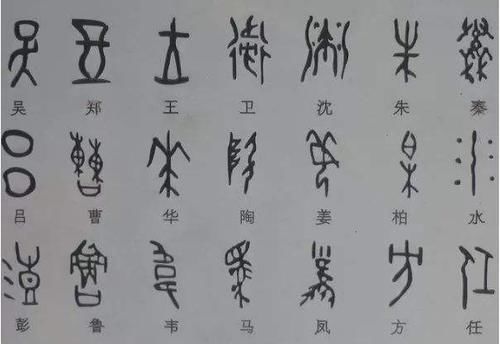 吴 郑 王 卫 沈 朱 秦
吕 曹 华 陶 姜 柏 水
彭 鲁 韦 马 凤 方 任